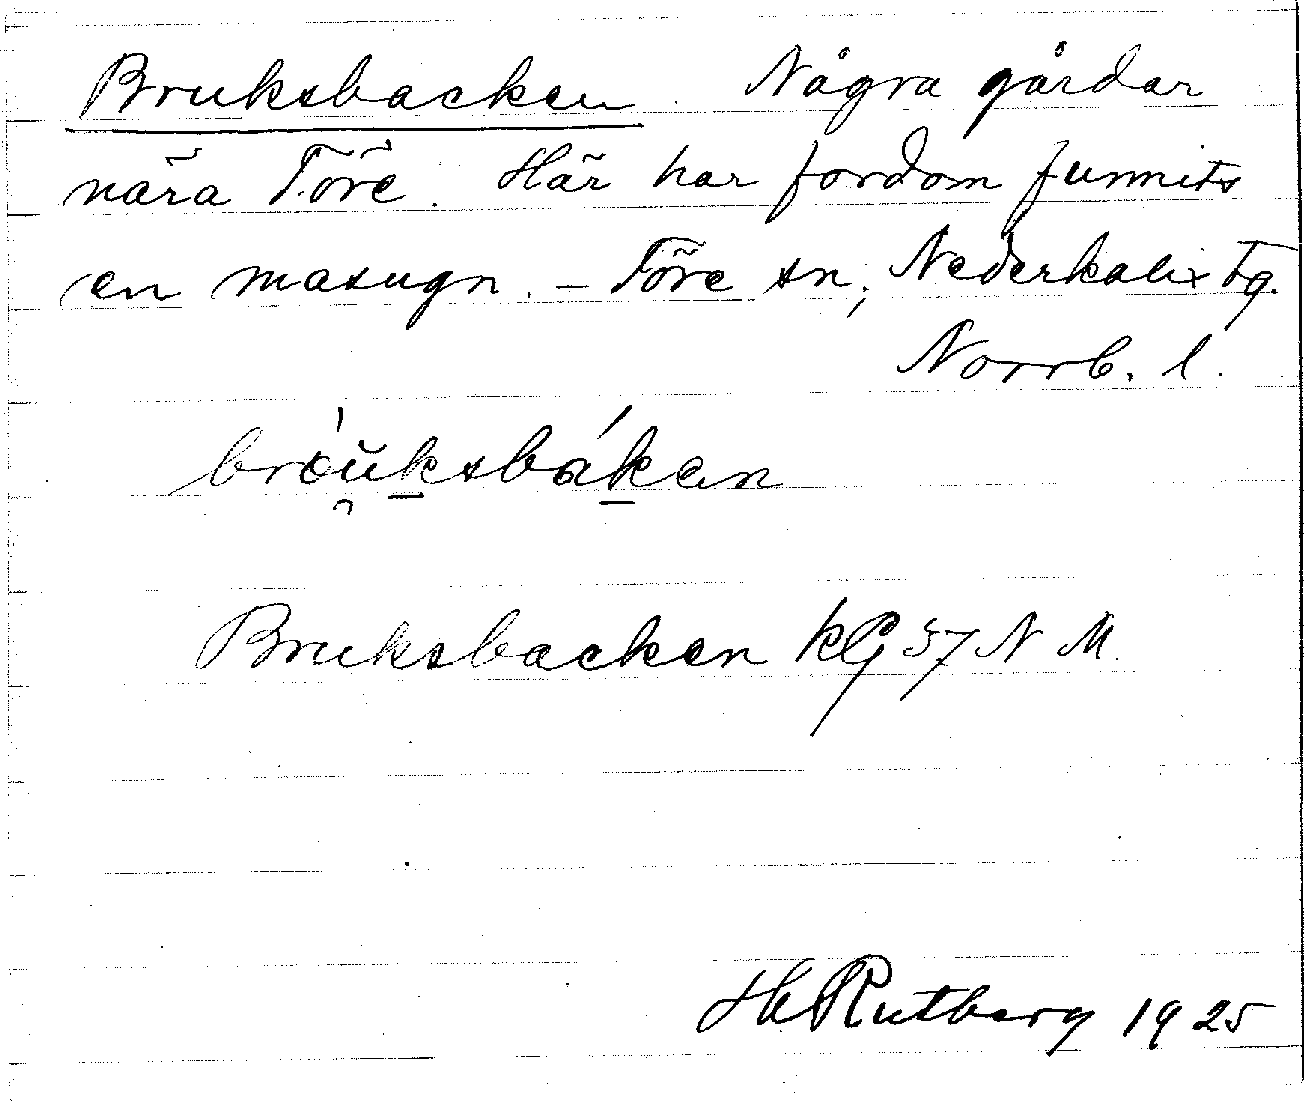 Bruksbacken. Några gårdar
nära Töre. Här har fordom funnits
en masugn. – Töre sn, Nederkalix tg.
Norrb. l.
bròu̯ksbákan
Bruksbacken kG 57 N M.
H Rutberg 1925